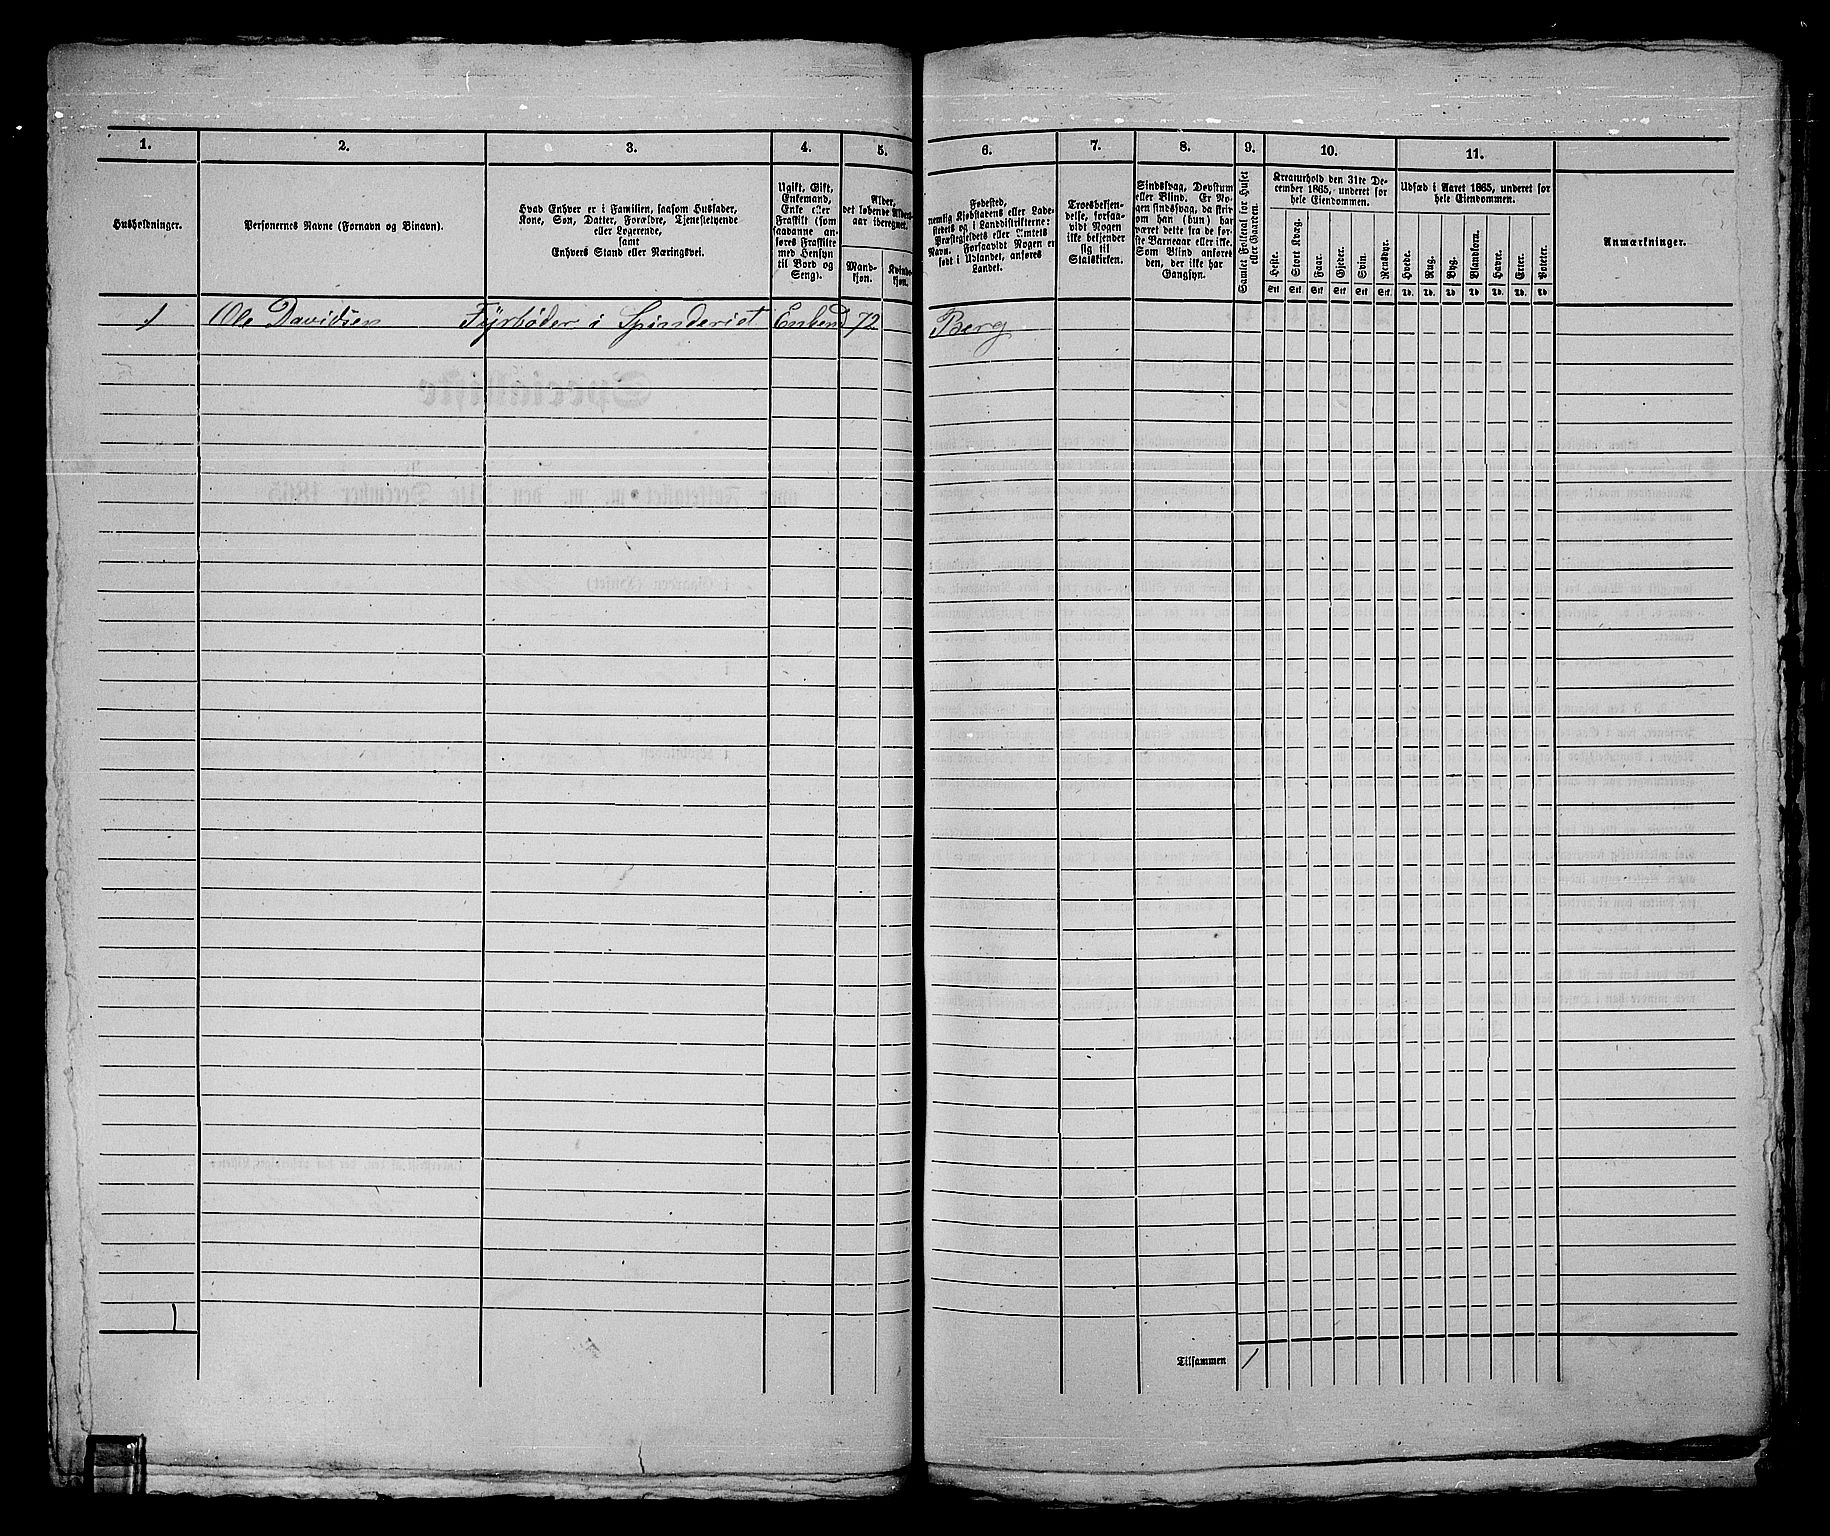 1. 2. 3. 4. 5. 6. 7. 8. 9. 10. 11.
Husholdninger.
Personernes Navne (Fornavn og Binavn).
Hvad Enhver er i Familien, saasom Husfader,
Kone, Søn, Datter, Forældre, Tjenestetyende
eller Logerende,
samt
Enhvers Stand eller Næringsvei.
Ugift, Gift,
Enkemand,
Enke eller
Fraskilt (som
saadanne an-
føres Fraskilte
med Hensyn
til Bord og
Seng).
Alder,
det løbende Alders-
aar iberegnet.
Mand-
kjøn.
Kvinde-
kjøn.
Fødested,
nemlig Kjøbstadens eller Lade-
stedets og i Landdistrikterne:
Præstegjeldets eller Sognets
Navn. Forsaavidt Nogen er
født i Udlandet, anføres
Landet.
Troesbekjen-
delse, forsaa-
vidt Nogen
ikke bekjender
sig til
Statskirken.
Sindssvag, Døvstum
eller Blind. Er No-
gen sindssvag, da skriv
om han (hun) har
været dette fra før-
ste Barneaar eller ikke.
Som Blind anføres
den, der ikke har
Gangsyn.
Samlet Folketal for Huset
eller Gaarden.
Kreaturhold den 31te De-
cember 1865, underet for
hele Eiendommen.
Heste. Stort Kvæg. Faar. Gjeder. Svin. Rensdyr.
Stk Stk Stk Stk Stk Stk.
Udsæd i Aaret 1865, underet for
hele Eiendommen.
Hvede. Rug. Byg. Blandkorn. Havre. Erter. Poteter.
Td. Td. Td Td Td Td Td
Anmærkninger.
1 Ole Davidsen Fyrbøder i Spinderiet Enkem 72 Berg
1
Tilsammen 1